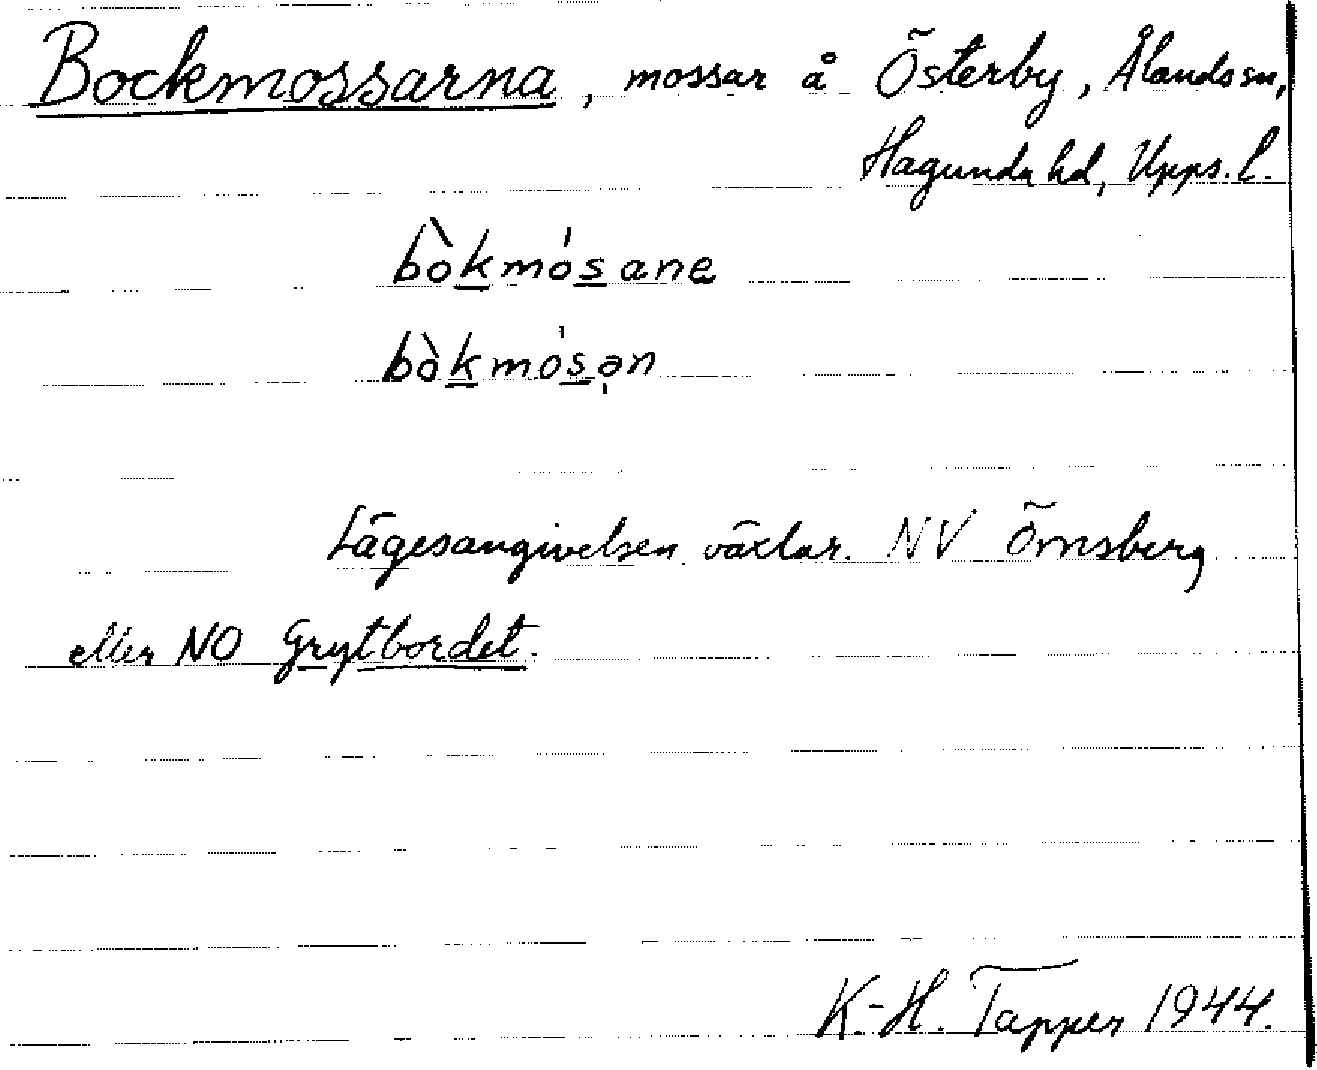 Bockmossarna, mossar å Österby, Ålands sn,
Hagunda hd, Upps. l.
bòkmósane
bòkmósən
Lägesangivelsen växlar. NV Örnsberg
eller NO Grytbordet.
K.-H. Tapper 1944.